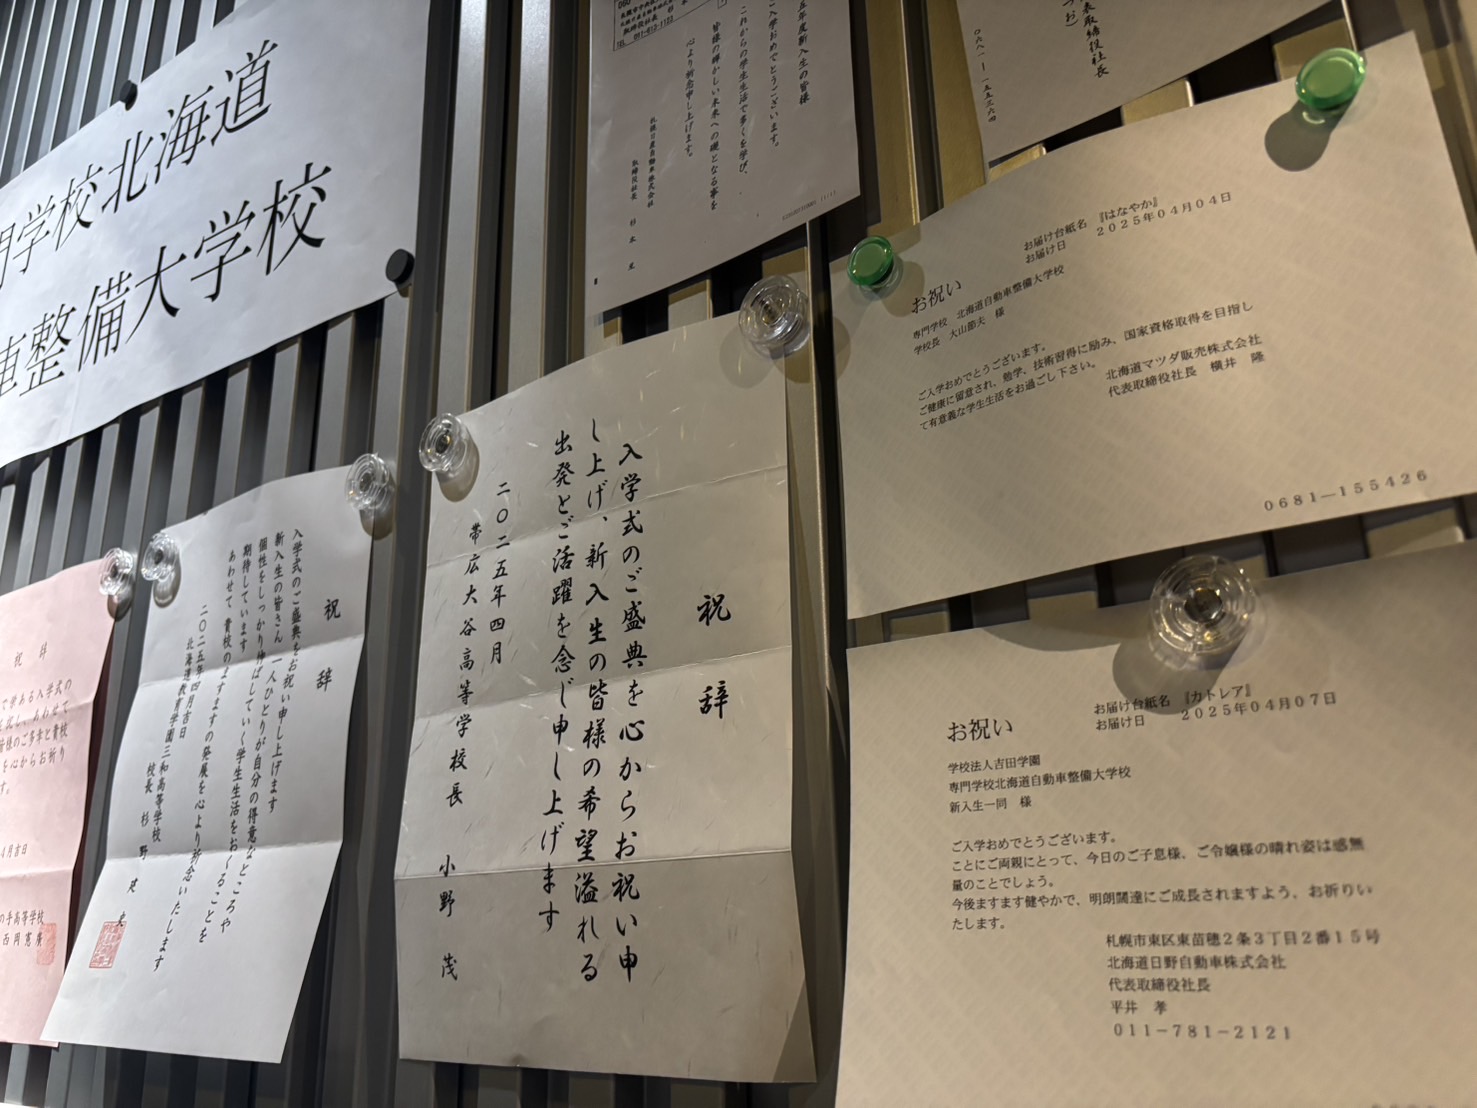 門学校北海道
車整備大学校
TEL 011-612-1123
五年度新入生の皆様
ご入学おめでとうございます。
これからの学生生活で多くを学び、
皆様の輝かしい未来への礎となる事を
心より祈念申し上げます。
札幌日産自動車株式会社
取締役社長
表取締役社長
0681-155364
お届け台紙名 『はなやか』
お届け日 2025年04月04日
お祝い
専門学校 北海道自動車整備大学校
学校長 大山節夫 様
ご入学おめでとうございます。
ご健康に留意され、勉学、技術習得に励み、国家資格取得を目指し
て有意義な学生生活をお過ごし下さい。
北海道マツダ販売株式会社
代表取締役社長 横井 隆
0681-155426
お届け台紙名 『カトレア』
お届け日 2025年04月07日
お祝い
学校法人吉田学園
専門学校北海道自動車整備大学校
新入生一同 様
ご入学おめでとうございます。
ことにご両親にとって、今日のご子息様、ご令嬢様の晴れ姿は感無
量のことでしょう。
今後ますます健やかで、明朗闊達にご成長されますよう、お祈りい
たします。
札幌市東区東苗穂2条3丁目2番15号
北海道日野自動車株式会社
代表取締役社長
平井 孝
011-781-2121
祝辞
入学式のご盛典を心からお祝い申
し上げ、新入生の皆様の希望溢れる
出発とご活躍を念じ申し上げます
二〇二五年四月
帯広大谷高等学校長 小野 茂
祝辞
入学式のご盛典をお祝い申し上げます
新入生の皆さん 一人ひとりが自分の得意なところや
個性をしっかり伸ばしていく学生生活をおくることを
期待しています
あわせて 貴校のますますの発展を心より祈念いたします
二〇二五年四月吉日
北海道教育学園三和高等学校
校長 杉野 建史
祝辞
で学ある入学式の
皆様のご多幸と貴校
を心からお祈り
す。
4月吉日
の手高等学校
西岡憲廣